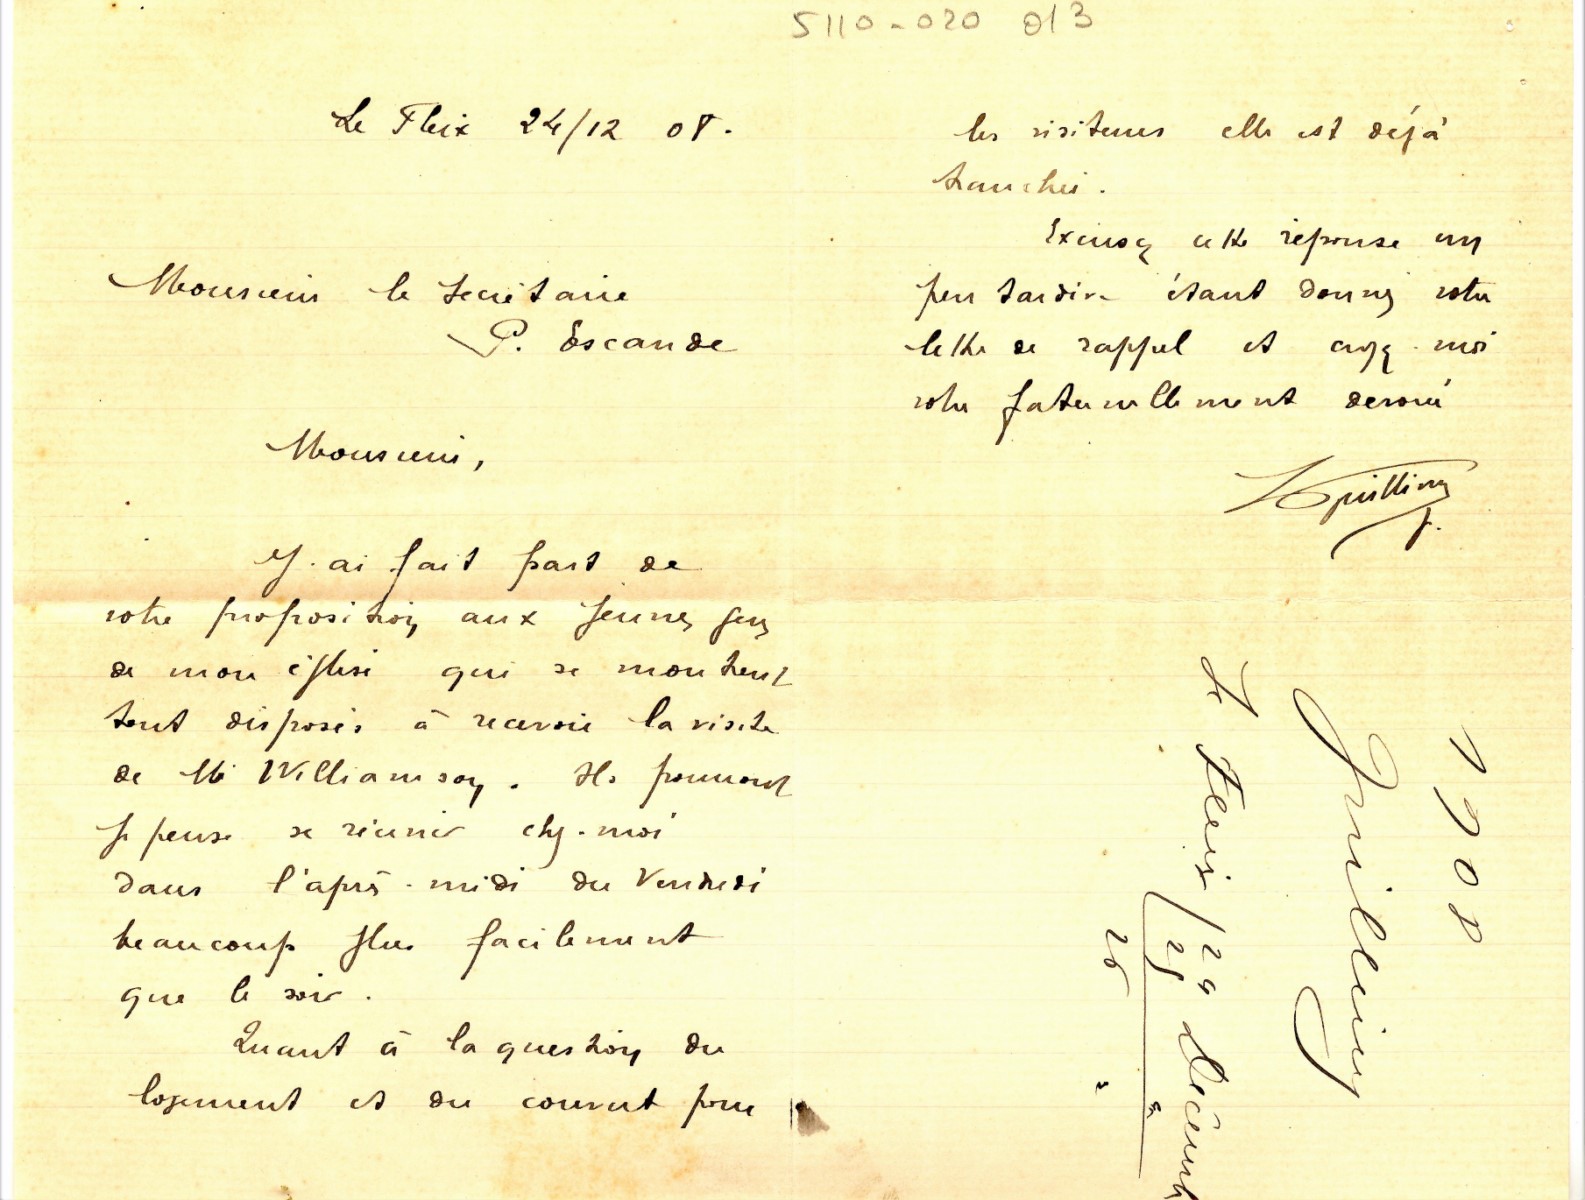 5110-020 013
Le Fleix 24/12 08.
Monsieur le Secrétaire
P. Escande
Monsieur,
J'ai fait part de
votre proposition aux jeunes gens
de mon église qui se montrent
tout disposés à recevoir la visite
de Mr Williamson. Ils pourront
je pense se réunir chez-moi
dans l'après-midi du Vendredi
beaucoup plus facilement
que le soir.
Quant à la question du
logement et du couvert pour
les visiteurs elle est déjà
tranchée.
Excusez cette réponse un
peu tardive étant donnée votre
lettre de rappel et croyez-moi
votre fraternellement dévoué
1908
Le Fleix / 24 Décemb
25 "
26 "